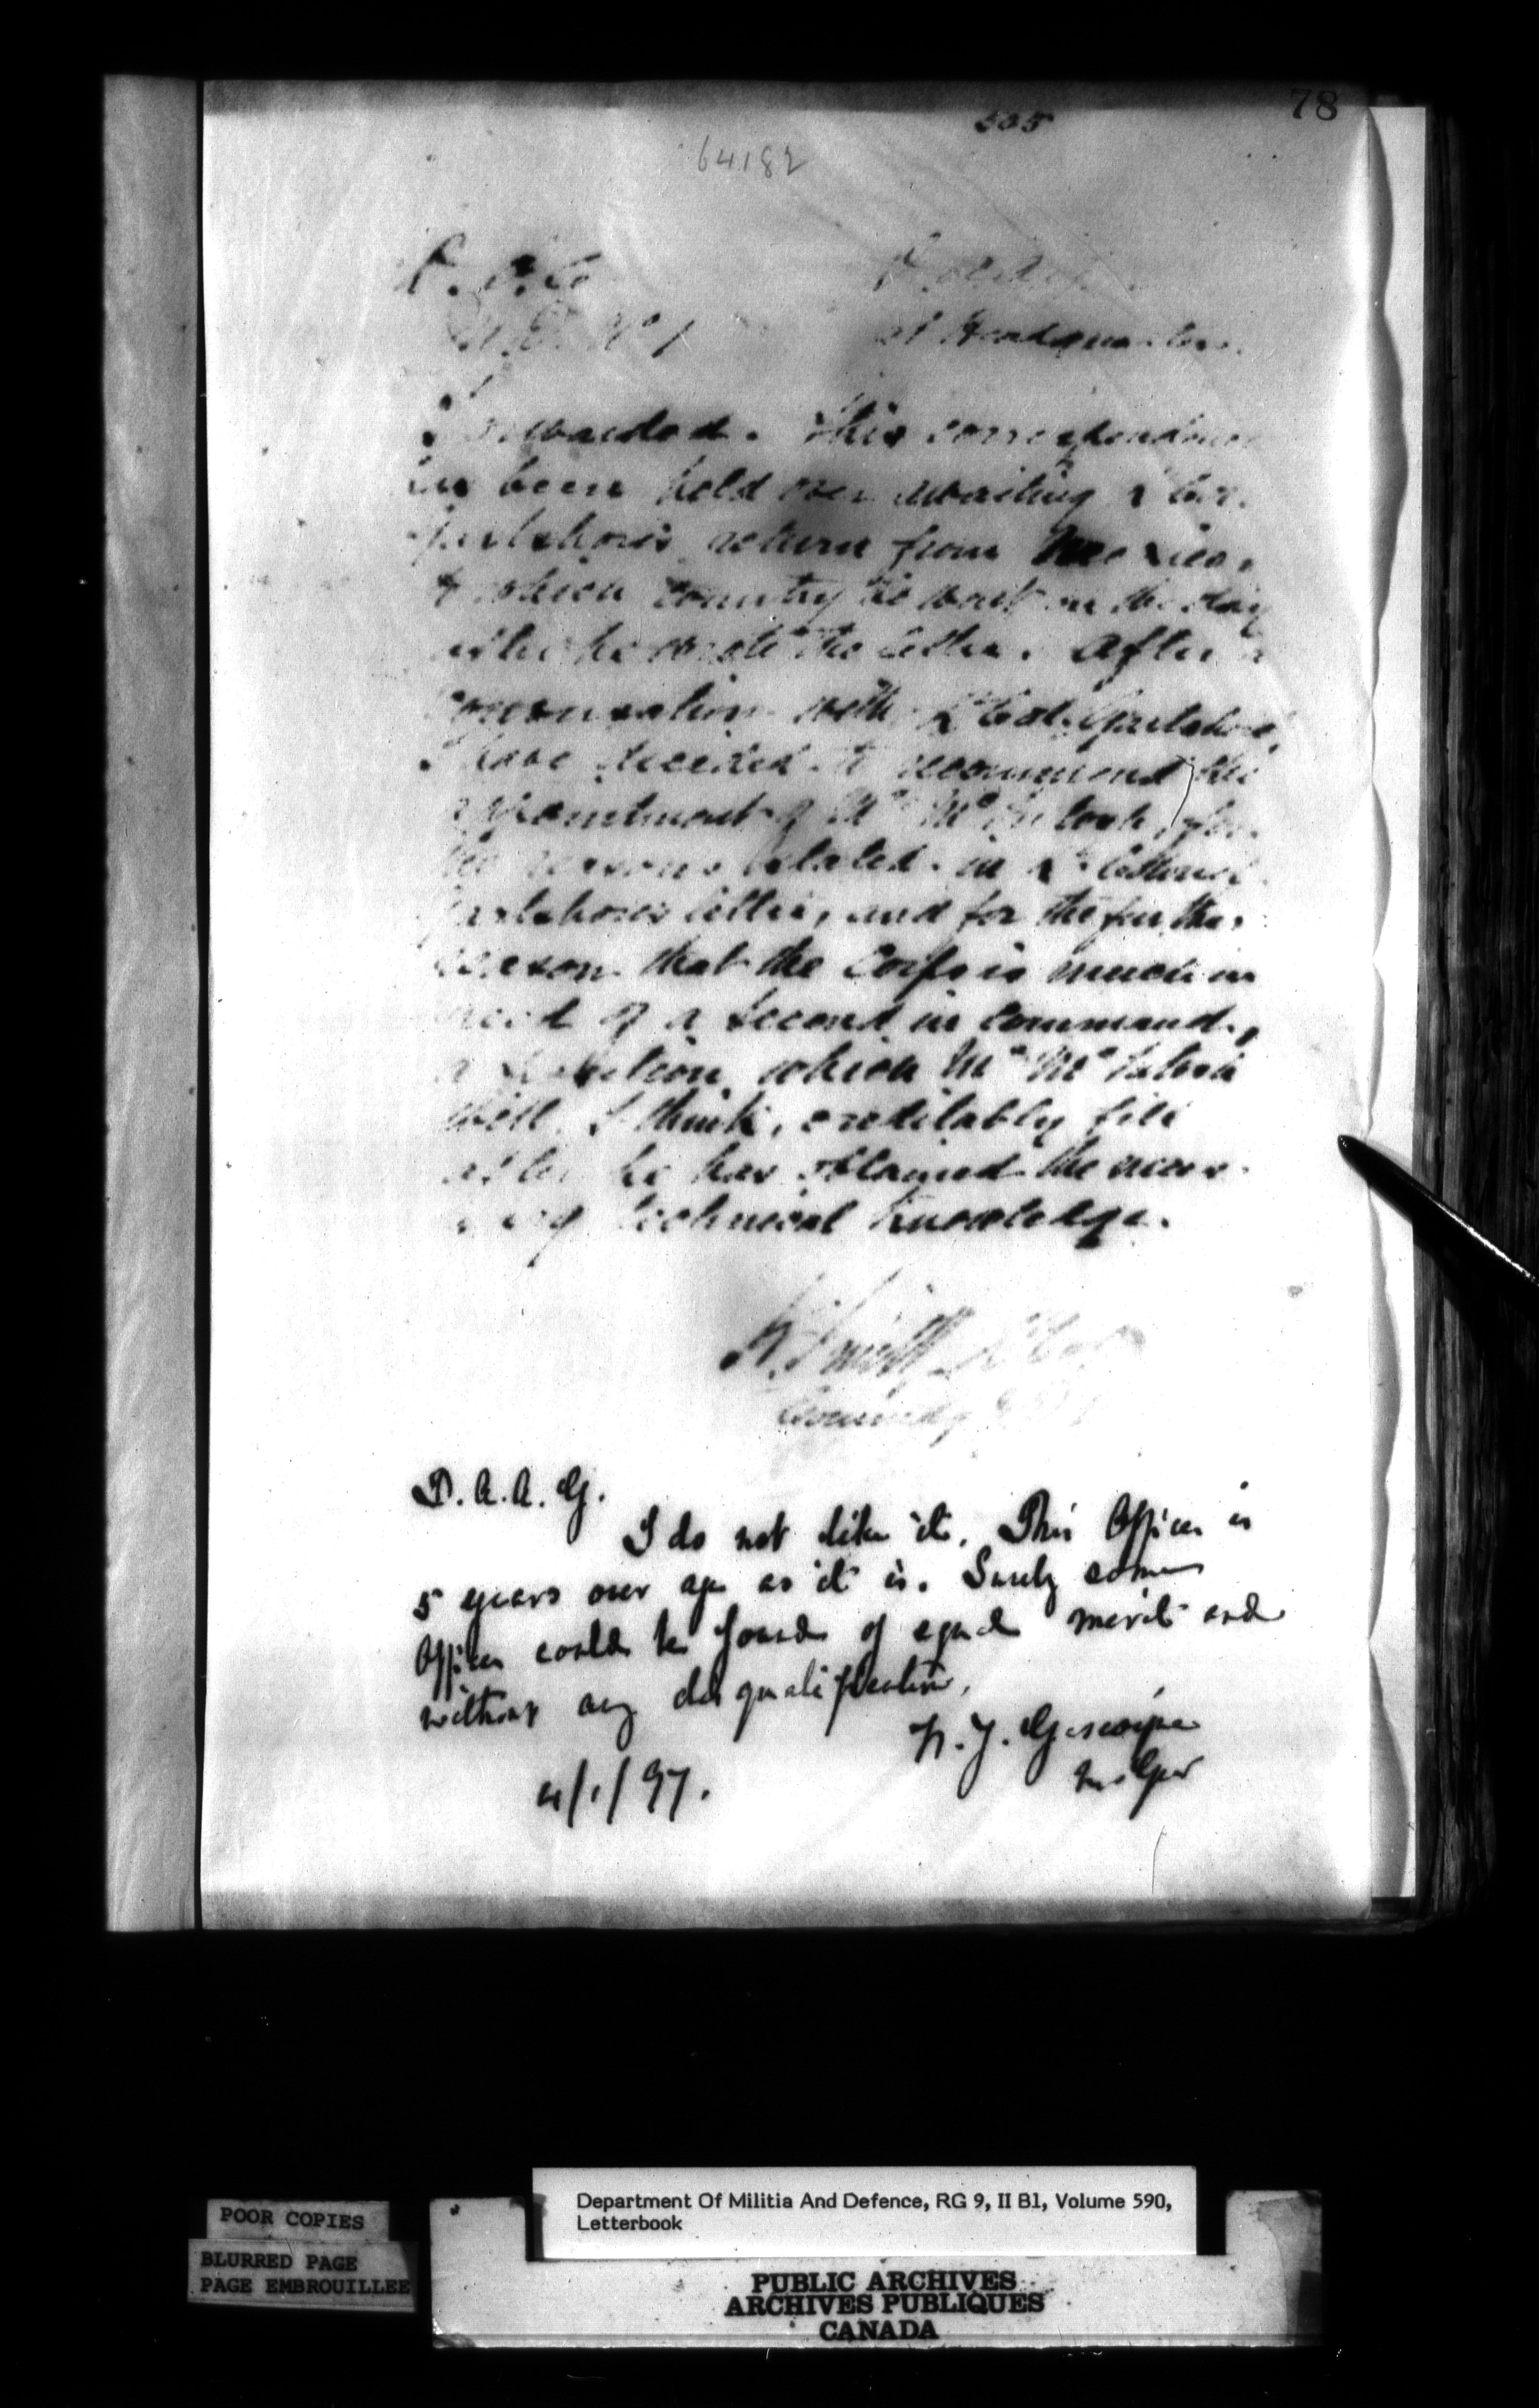 78
505
64182
at Headquarters.
Forwarded. This correspondence
has been held over awaiting Lt Col.
Gartshore's return from Mexico,
to which country he went on the day
after he wrote the letter. After a
conversation with Lt Col. Gartshore,
I have decided to recommend the
appointment of Mr McIntosh, for
the reasons stated in Lt Colonel
Gartshore's letter, and for the further
reason that the Corps is much in
need of a second in command,
a position which Mr McIntosh
will, I think, creditably fill
after he has obtained the neces-
sary technical knowledge.
Smith Lt Col
Commdg
D. A. A. G.
I do not like it. This Officer is
5 years over age as it is. Surely some
Officer could be found of equal merit and
without any disqualification.
Gascoigne
M. Genl
4/1/97.
Department Of Militia And Defence, RG 9, II B1, Volume 590,
Letterbook
POOR COPIES
BLURRED PAGE
PAGE EMBROUILLEE
PUBLIC ARCHIVES
ARCHIVES PUBLIQUES
CANADA